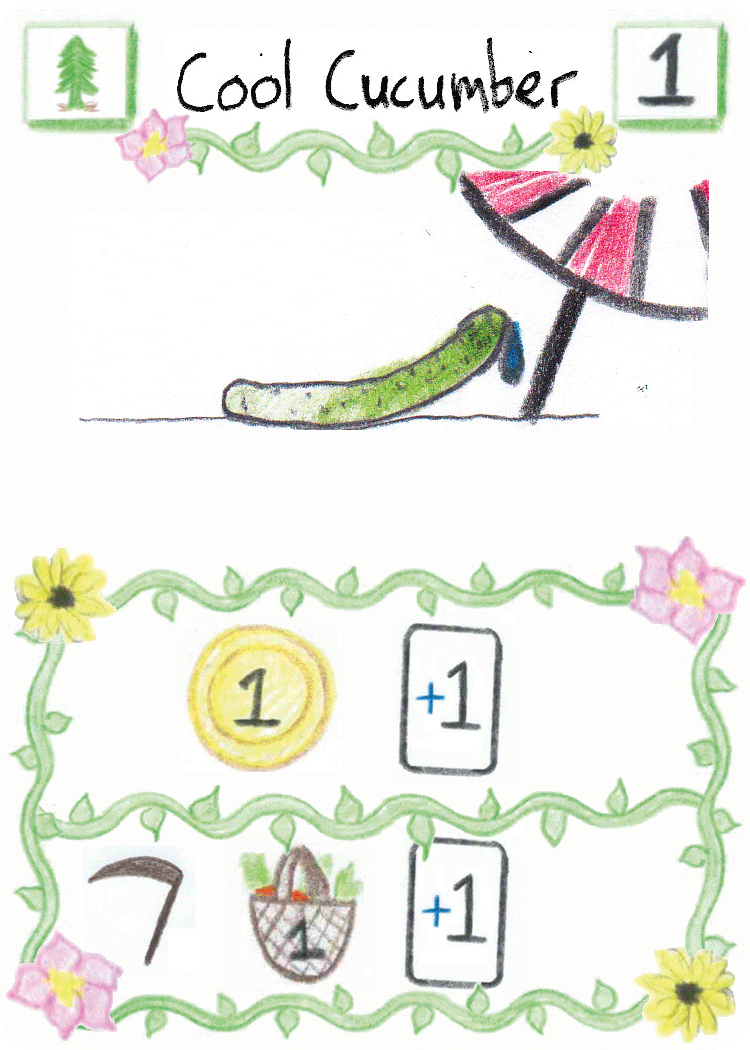 Cool Cucumber
1
1
+1
1
+1